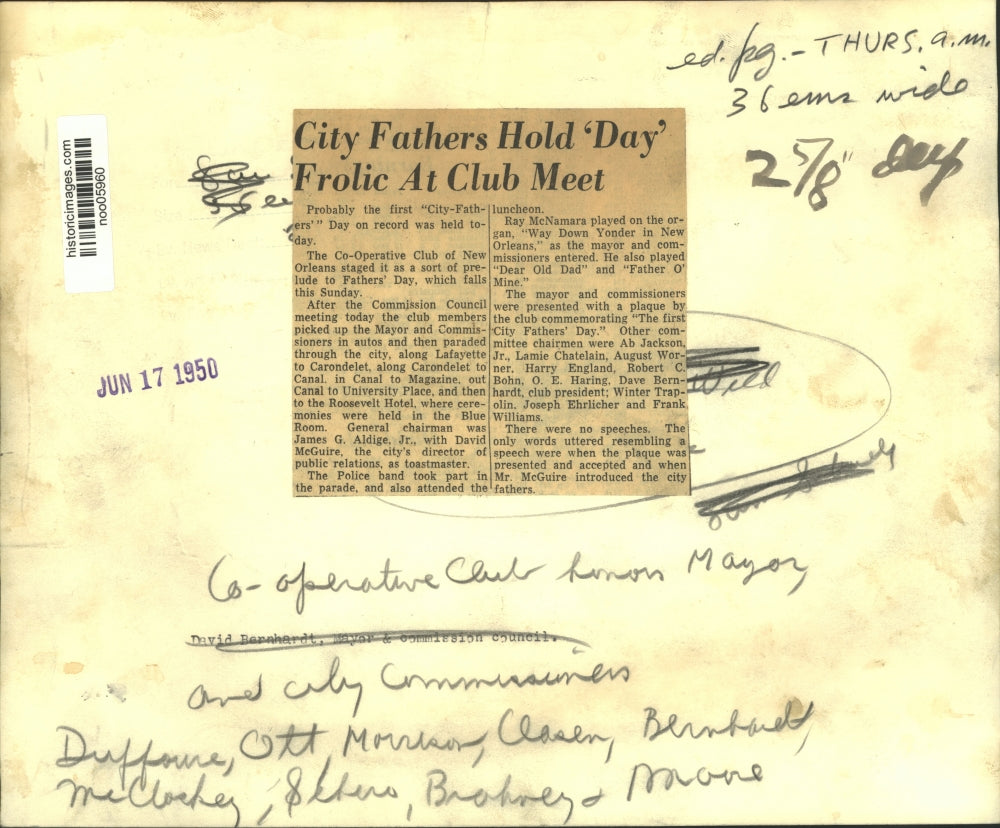 ed. pg. - THURS. a.m.
36 ems wide
2 5/8" deep
historicimages.com
noo05960
City Fathers Hold ‘Day’
Frolic At Club Meet
Probably the first “City-Fath-
ers’” Day on record was held to-
day.
The Co-Operative Club of New
Orleans staged it as a sort of pre-
lude to Fathers’ Day, which falls
this Sunday.
After the Commission Council
meeting today the club members
picked up the Mayor and Commis-
sioners in autos and then paraded
through the city, along Lafayette
to Carondelet, along Carondelet to
Canal, in Canal to Magazine, out
Canal to University Place, and then
to the Roosevelt Hotel, where cere-
monies were held in the Blue
Room. General chairman was
James G. Aldige, Jr., with David
McGuire, the city’s director of
public relations, as toastmaster.
The Police band took part in
the parade, and also attended the
luncheon.
Ray McNamara played on the or-
gan, “Way Down Yonder in New
Orleans,” as the mayor and com-
missioners entered. He also played
“Dear Old Dad” and “Father O’
Mine.”
The mayor and commissioners
were presented with a plaque by
the club commemorating “The first
City Fathers’ Day.” Other com-
mittee chairmen were Ab Jackson,
Jr., Lamie Chatelain, August Wor-
ner, Harry England, Robert C.
Bohn, O. E. Haring, Dave Bern-
hardt, club president; Winter Trap-
olin, Joseph Ehrlicher and Frank
Williams.
There were no speeches. The
only words uttered resembling a
speech were when the plaque was
presented and accepted and when
Mr. McGuire introduced the city
fathers.
JUN 17 1950
Co-operative Club honors Mayor,
David Bernhardt, Mayor & commission council.
and city Commissioners
Duffourc, Ott, Morrison, Clasen, Bernhardt,
McCloskey, Schiro, Brahney & Moore